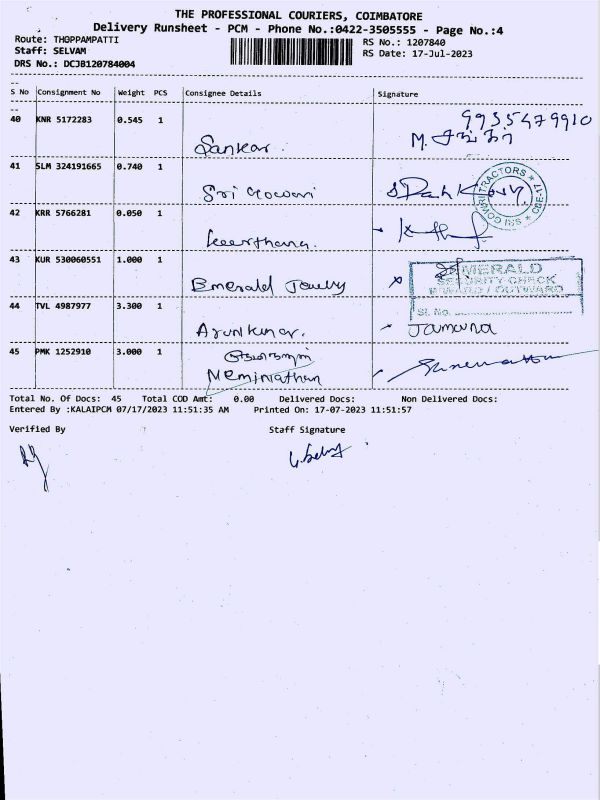 THE PROFESSIONAL COURIERS, COIMBATORE
Delivery Runsheet - PCM - Phone No.:0422-3505555 - Page No.:4
Route: THOPPAMPATTI
RS No.: 1207840
Staff: SELVAM
RS Date: 17-Jul-2023
DRS No.: DCJB120784004
S No Consignment No Weight PCS Consignee Details Signature
40 KNR 5172283 0.545 1
9955479910
Sankar. M. சங்கர்
41 SLM 324191665 0.740 1
Sri Gowri
42 KRR 5766281 0.050 1
Keerthana.
43 KUR 530060551 1.000 1
Emerald Jewelry
EMERALD
SECURITY CHECK
INWARD / OUTWARD
Sl. No.
44 TVL 4987977 3.300 1
Arunkumar. Jamuna
45 PMK 1252910 3.000 1
Neminathan
Total No. Of Docs: 45 Total COD Amt: 0.00 Delivered Docs: Non Delivered Docs:
Entered By :KALAIPCM 07/17/2023 11:51:35 AM Printed On: 17-07-2023 11:51:57
Verified By Staff Signature